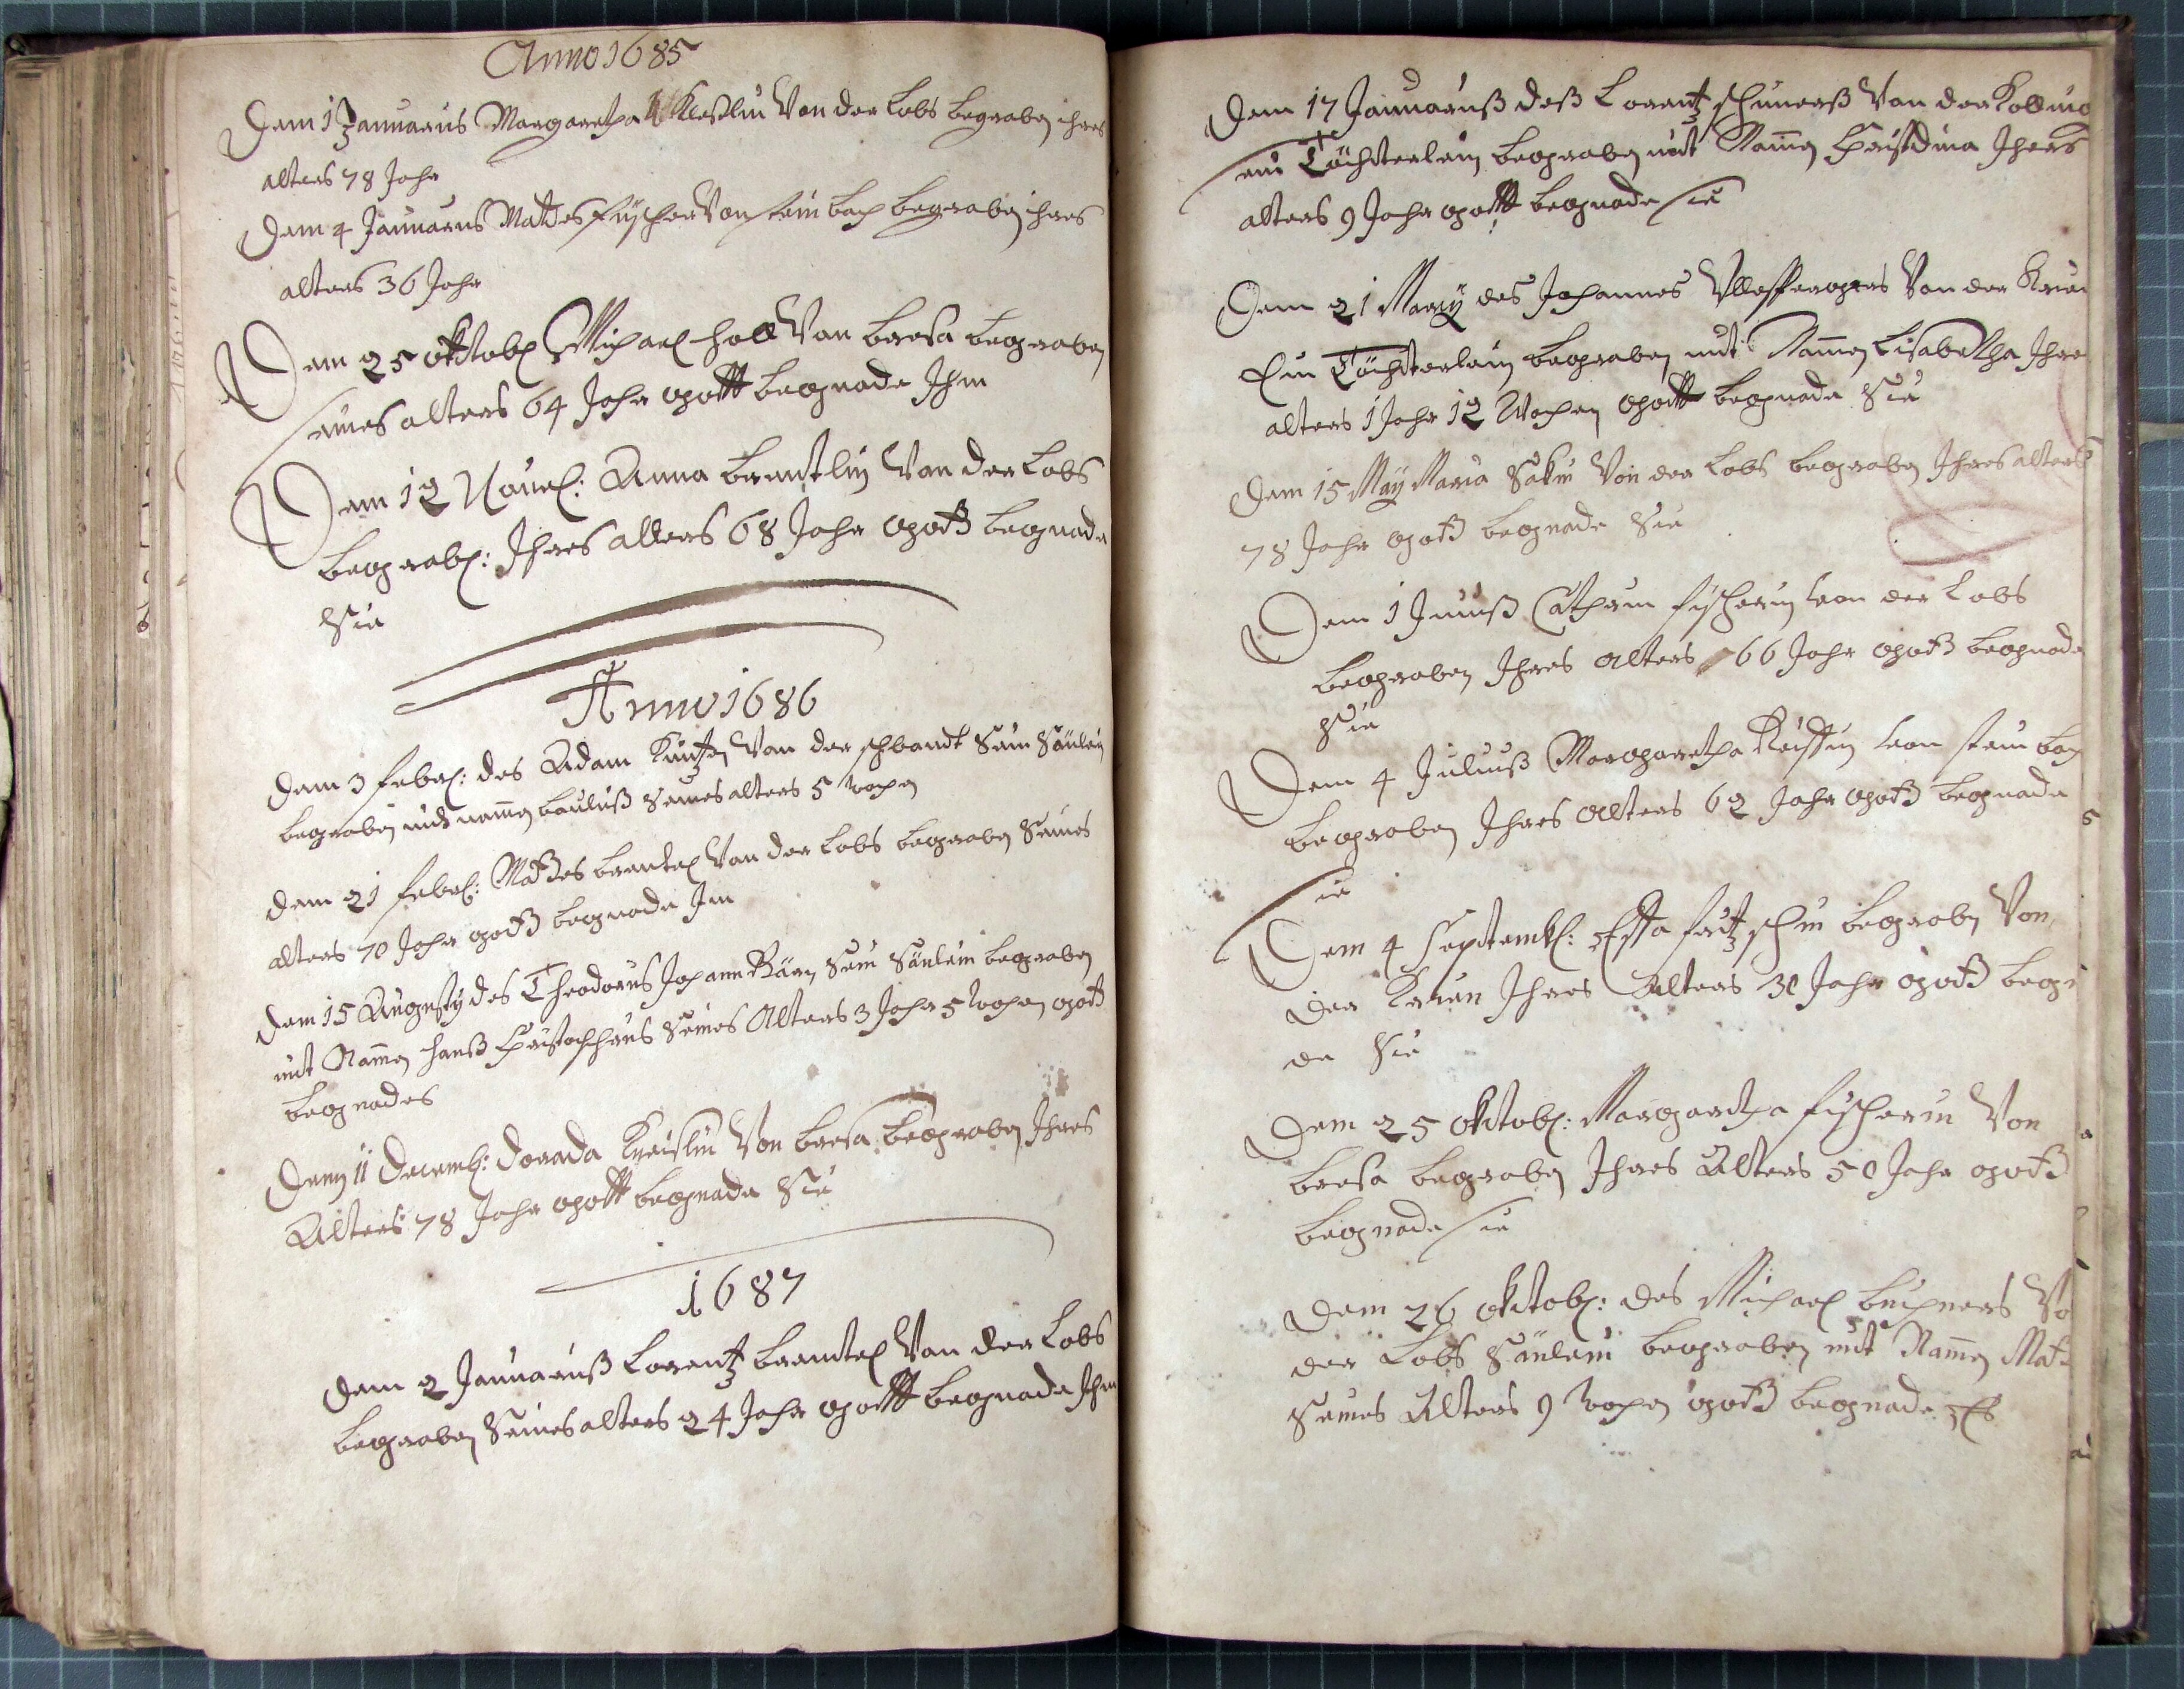 Anno 1685
Dem 1 Januarius Margaretha Kleeßlin Von der Lobs begraben ihres
alters 78 Jahr
Dem 4 Januarus Mattes fyscher Von stein bach begraben ihres
alters 36 Jahr
Dem 25 oktob: Michael holl Von bresa begraben
seines alters 64 Jahr gott begnade Jhm
Dem 12 Nouel: Anna brentlin Von der Lobs
begrab: Jhres alters 68 Jahr gott begnade
Sie
Anno 1686
dem 3 febrl: des Adam Kuntzen Von der schbandt Sein Sönlein
begraben mit namen bauluß Seines alters 5 wochen
dem 21 febrl: Mattes brentel Von der Lobs begraben Seines
alters 70 Jahr gott begnade Jm
dem 15 Augusty des Theodorus Johann Bären Sein Sönlein begraben
mit Namen hanß Christoffhorus Seines Alters 3 Jahr 5 wochen gott
begnade es
Dem 11 Decemb: dorada Kreislin Von bresa begraben Jhres
Alters 78 Jahr gott begnade Sie
1687
dem 2 Januaruß Lorentz brentel Von der Lobs
begraben Seines alters 24 Jahr gott begnade Jhm
Dem 17 Januaruß deß Lorentz schuners Von der Kolling
ein Töchterlein begraben mit Namen Christina Jhres
alters 9 Jahr gott begnade sie
Dem 21 Marÿ des Johannes Von der Kruen
Ein Töchterlein begraben mit Namen Lisabetha Jhre
alters 1 Jahr 12 Wochen gott begnade Sie
Dem 15 Maÿ Maria Sakin Von der Lobs begraben Jhres alters
78 Jahr gott begnade Sie
Dem 1 Junuß Cathrin fyscherin von der Lobs
begraben Jhres alters 66 Jahr gott begnade
Sie
Dem 4 Juliuß Margaretha von stein bach
begraben Jhres Alters 62 Jahr gott begnade
sie
Dem 4 Septemb: Effa fritz schin begraben Von
der Kruen Jhres Alters 30 Jahr gott begn
de Sie
Dem 25 oktob: Margaretha fischerin Von
bresa begraben Jhres Alters 50 Jahr gott
begnade sie
Dem 26 oktob: des Michael buchners Vo
der Lobs Sönlein begraben mit Namen Mat
Seines Alters 9 wochen gott begnade Es